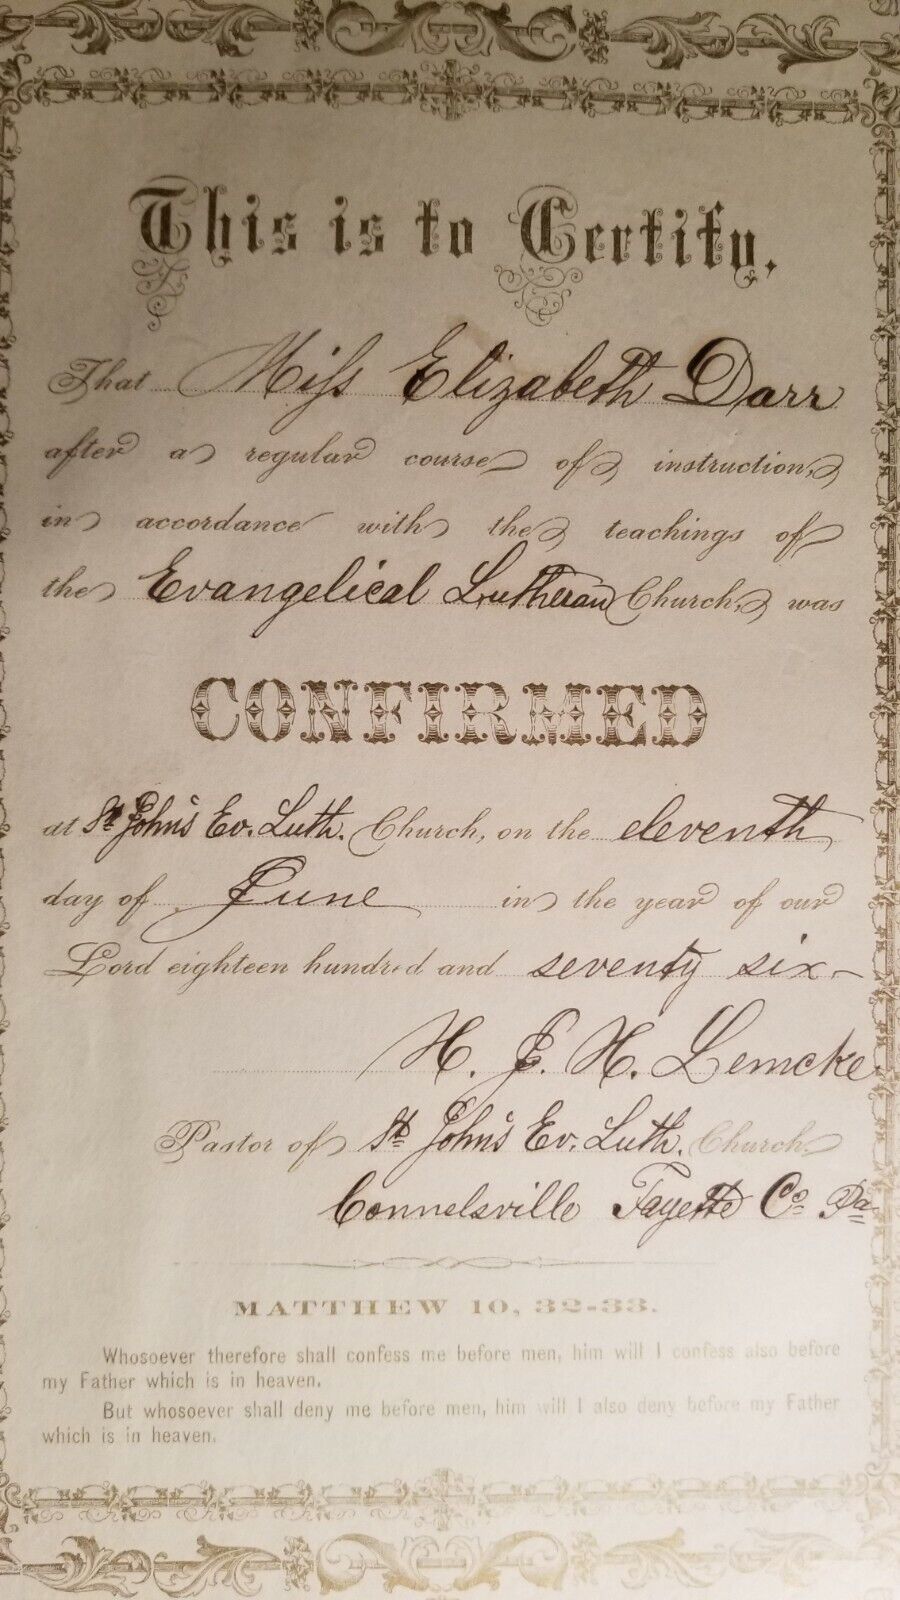 This is to Certify,
That Miss Elizabeth Darr
after a regular course of instruction,
in accordance with the teachings of
the Evangelical Lutheran Church, was
CONFIRMED
at St John's Ev. Luth. Church, on the eleventh
day of June in the year of our
Lord eighteen hundred and seventy six
H. J. H. Lemcke
Pastor of St John's Ev. Luth. Church.
Connelsville Fayette Co Pa
MATTHEW 10, 32-33.
Whosoever therefore shall confess me before men, him will I confess also before
my Father which is in heaven.
But whosoever shall deny me before men, him will I also deny before my Father
which is in heaven.